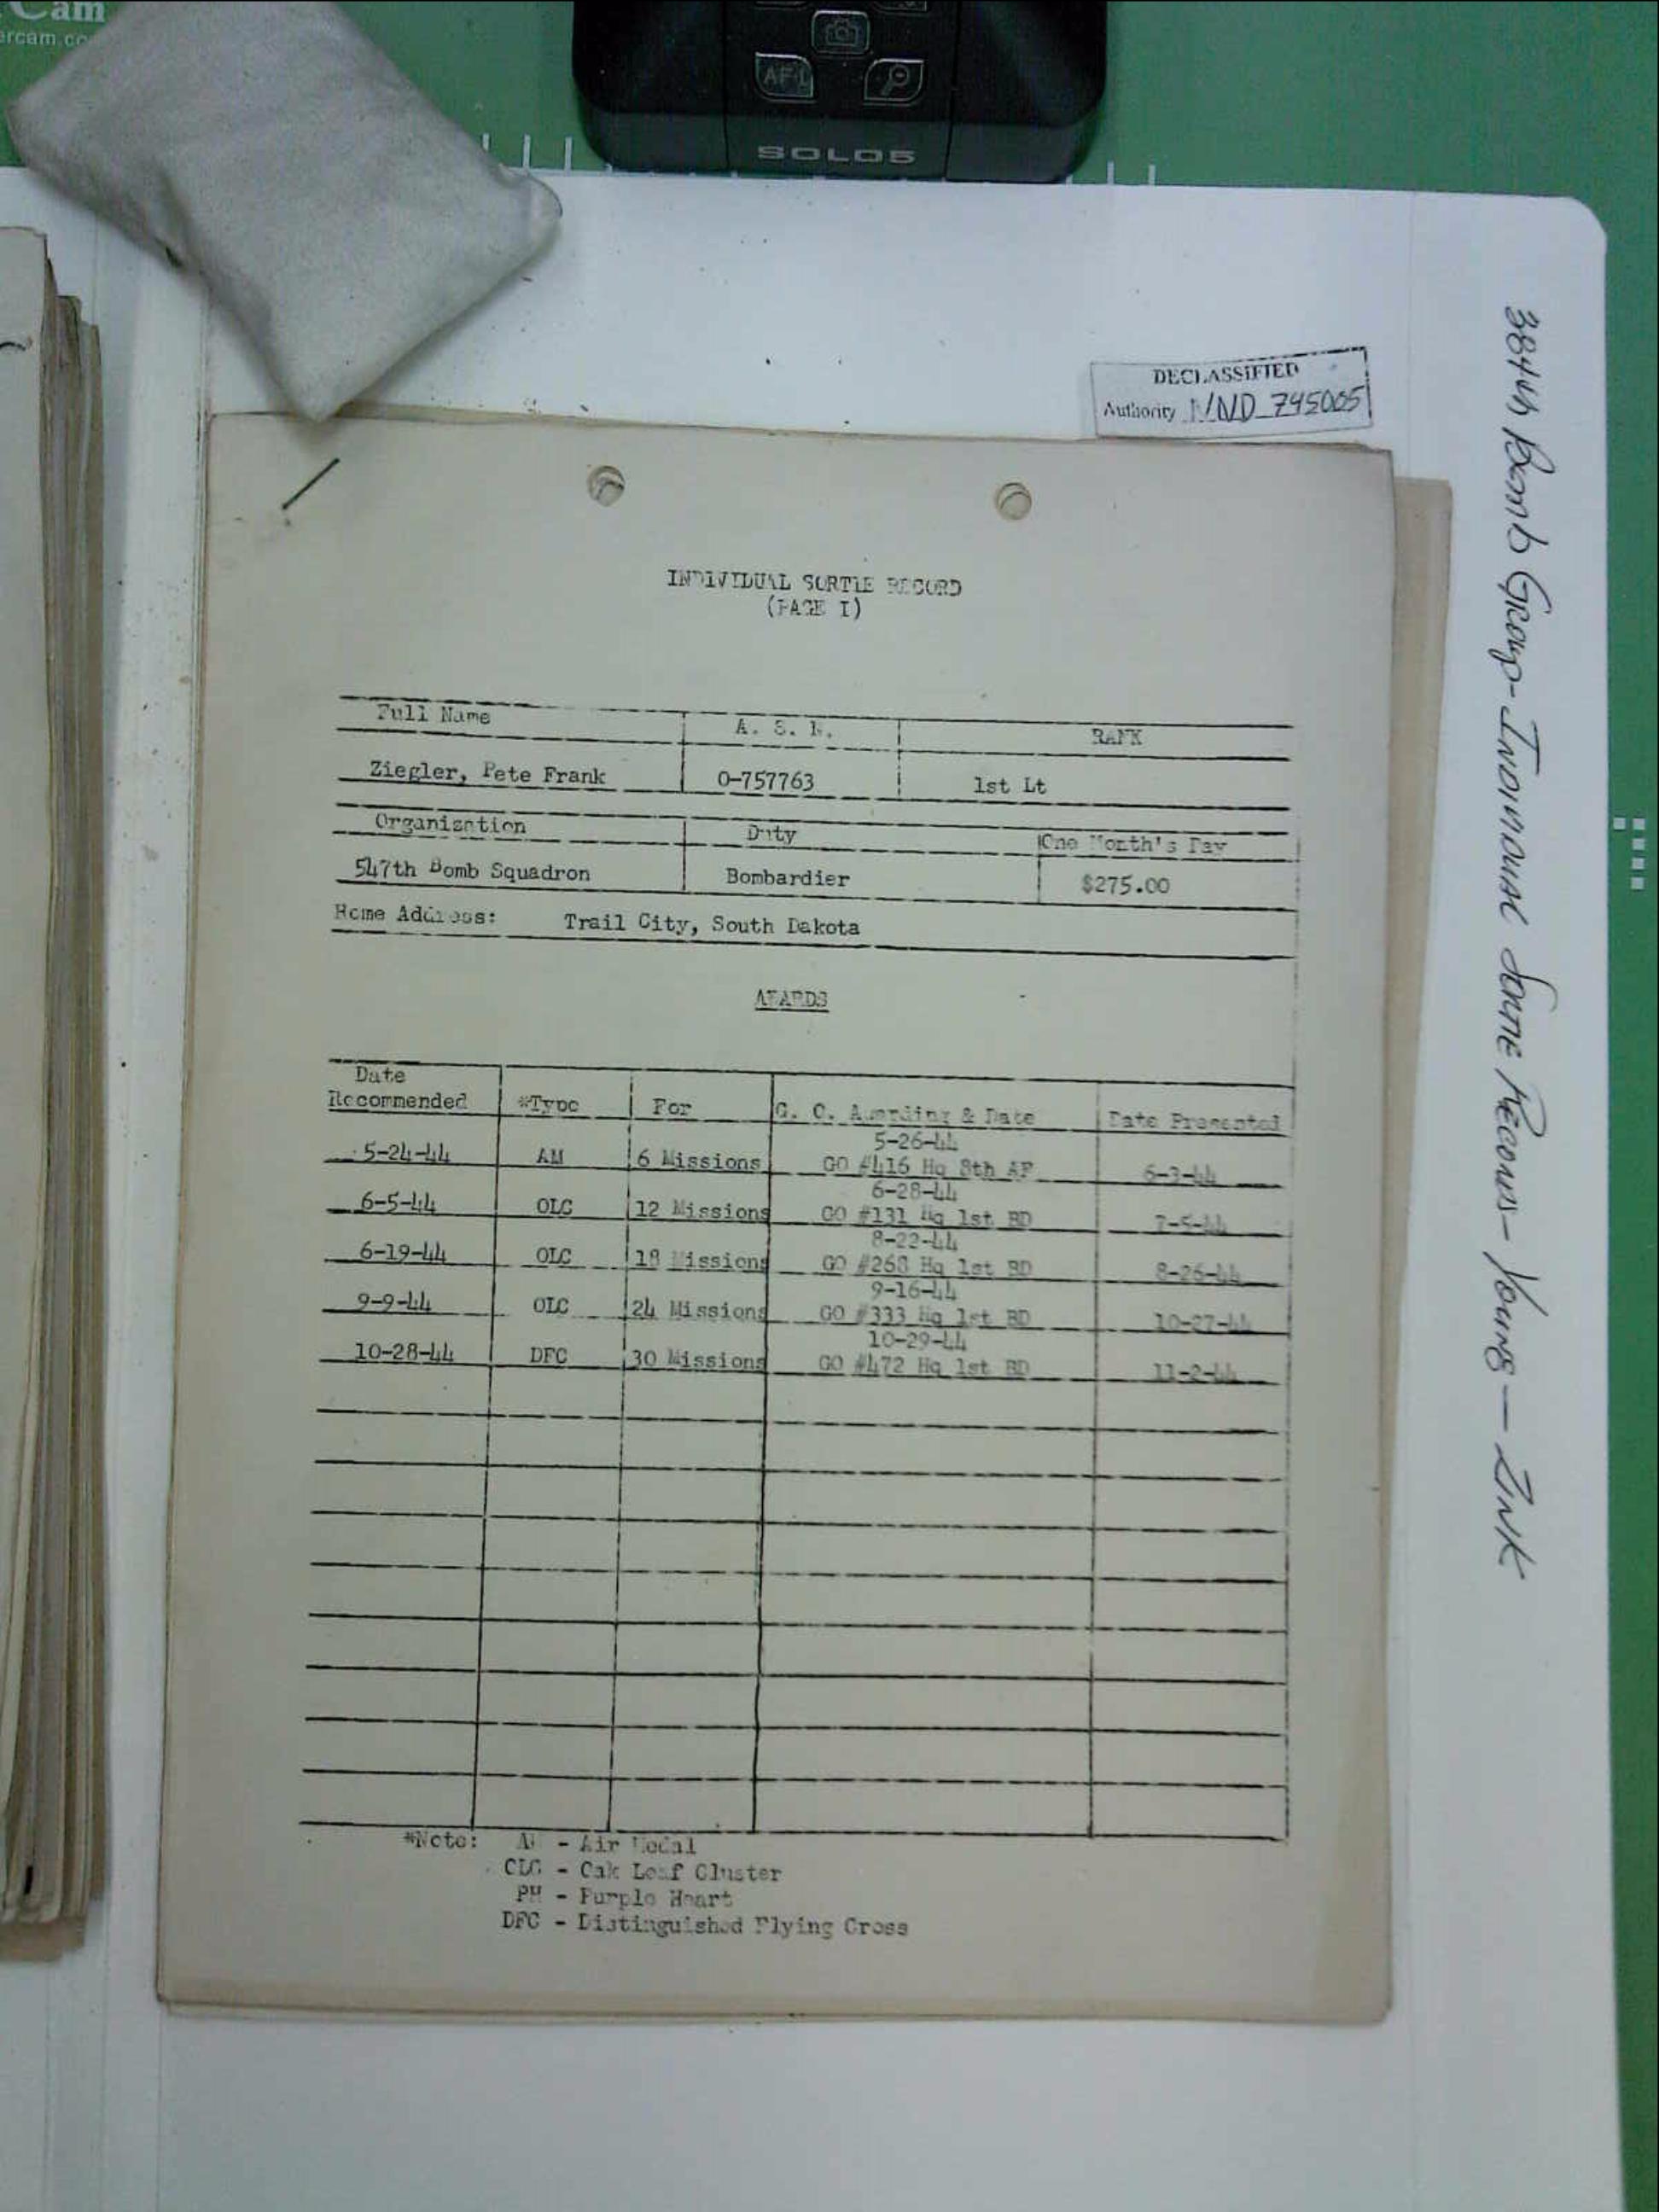 Cam
ercam.co
AF-L
SOLO5
DECLASSIFIED
Authority NND 745005
384th Bomb Group-Individual Sortie Records-Young-Zink
INDIVIDUAL SORTIE RECORD
(PAGE I)
Full Name A. S. N. RANK
Ziegler, Pete Frank 0-757763 1st Lt
Organization Duty One Month's Pay
547th Bomb Squadron Bombardier $275.00
Home Address: Trail City, South Dakota
AWARDS
Date
Recommended *Type For G. O. Awarding & Date Date Presented
5-26-44
5-24-44 AM 6 Missions GO #416 Hq 8th AF 6-3-44
6-28-44
6-5-44 OLC 12 Missions GO #131 Hq 1st BD 7-5-44
8-22-44
6-19-44 OLC 18 Missions GO #268 Hq 1st BD 8-26-44
9-16-44
9-9-44 OLC 24 Missions GO #333 Hq 1st BD 10-27-44
10-29-44
10-28-44 DFC 30 Missions GO #472 Hq 1st BD 11-2-44
*Note: AM - Air Medal
OLC - Oak Leaf Cluster
PH - Purple Heart
DFC - Distinguished Flying Cross